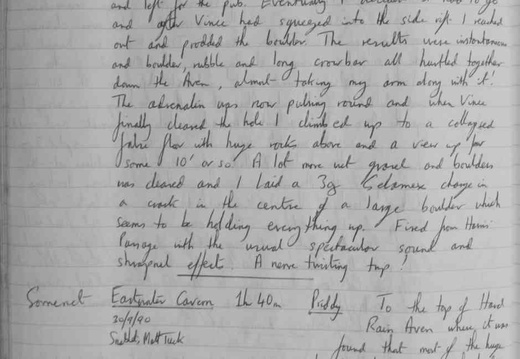 and left for the pub. Eventually I
and after Vince had squeezed into the side rift I reached
out and prodded the boulder. The results were instantaneous
and boulder, rubble and long crowbar all hurtled together
down the Aven, almost taking my arm along with it!
The adrenalin was now pulsing round and when Vince
finally cleared the hole I climbed up to a collapsed
false floor with huge rocks above and a view up for
some 10' or so. A lot more wet gravel and boulders
was cleared and I laid a 3oz Gelamex charge in
a crack in the centre of a large boulder which
seems to be holding everything up. Fired from Harris'
Passage with the usual spectacular sound and
shrapnel effect. A nerve twisting trip!
Somerset Eastwater Cavern 1h 40m Priddy To the top of Hard
30/9/90 Rain Aven where it was
Matt Tuck found that most of the huge